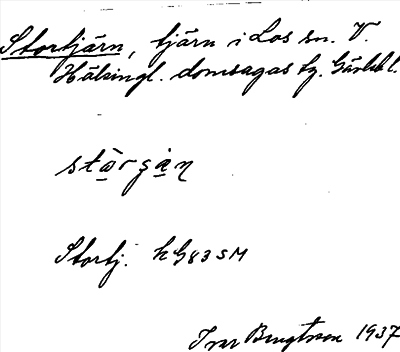 Stortjärn, tjärn i Los sn. V.
Hälsingl. domsagas tg. Gävlebl.
Stortj. k G83 SM
Ivar Bengtsson 1937